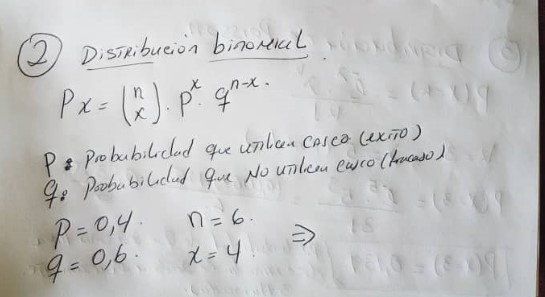 ② Distribución binomial
Px = (n x) . p^x . q^n-x .
P: Probabilidad que utilicen casco (exito)
q: Probabilidad que No utilicen casco (fracaso)
p = 0,4 . n = 6 . ⇒
q = 0,6 . x = 4 .